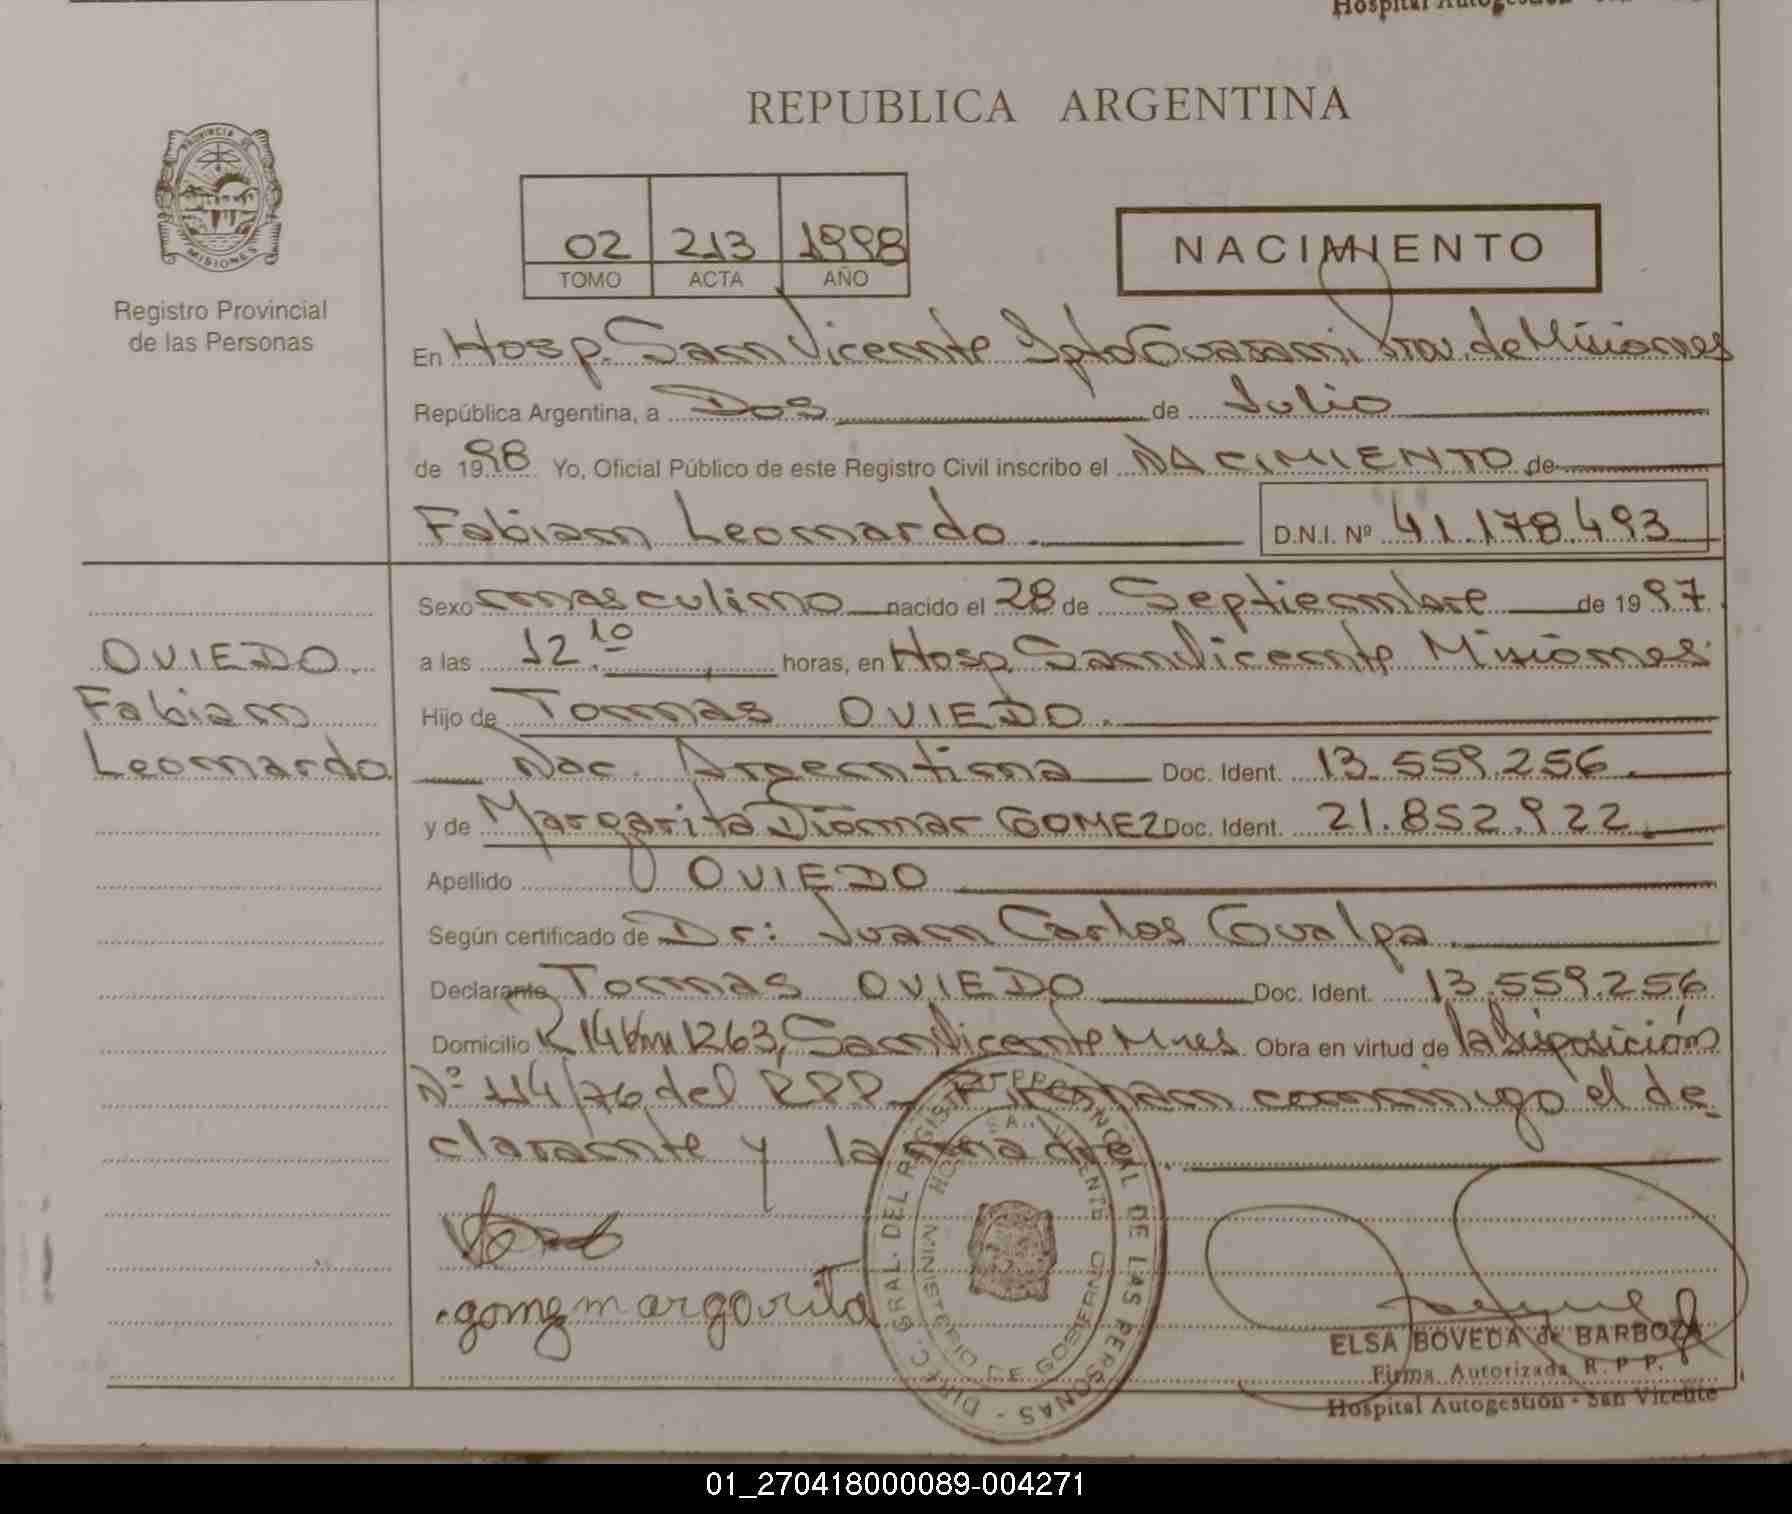 Hospital Autogestión - San Vicente
REPUBLICA ARGENTINA
PROVINCIA DE
MISIONES
Registro Provincial
de las Personas
02 213 1998
TOMO ACTA AÑO
NACIMIENTO
En Hosp. San Vicente Dpto Guarani, Prov. de Misiones
República Argentina, a Dos de Julio
de 1998 Yo, Oficial Público de este Registro Civil inscribo el NACIMIENTO de
Fabian Leonardo. D.N.I. Nº 41.178.493
OVIEDO.
Fabian
Leonardo
Sexo masculino nacido el 28 de Septiembre de 1997.
a las 12.10 horas, en Hosp. San Vicente Misiones.
Hijo de Tomas OVIEDO.
Nac. Argentina Doc. Ident. 13.559.256.
y de Margarita Diomar GOMEZ Doc. Ident. 21.852.922.
Apellido OVIEDO
Según certificado de Dr: Juan Carlos Gualpa.
Declarante Tomas OVIEDO Doc. Ident. 13.559.256
Domicilio R 14 km 1263, San Vicente Mnes. Obra en virtud de la disposición
Nº 114/76 del R.P.P. Firman conmigo el de-
clarante y la madre.
gomez margarita
DIREC. GRAL. DEL REGISTRO PROVINCIAL DE LAS PERSONAS
MINISTERIO DE GOBIERNO
HOSP. SAN VICENTE
ELSA BOVEDA de BARBOZA
Firma Autorizada R. P. P.
Hospital Autogestión - San Vicente
01_270418000089-004271